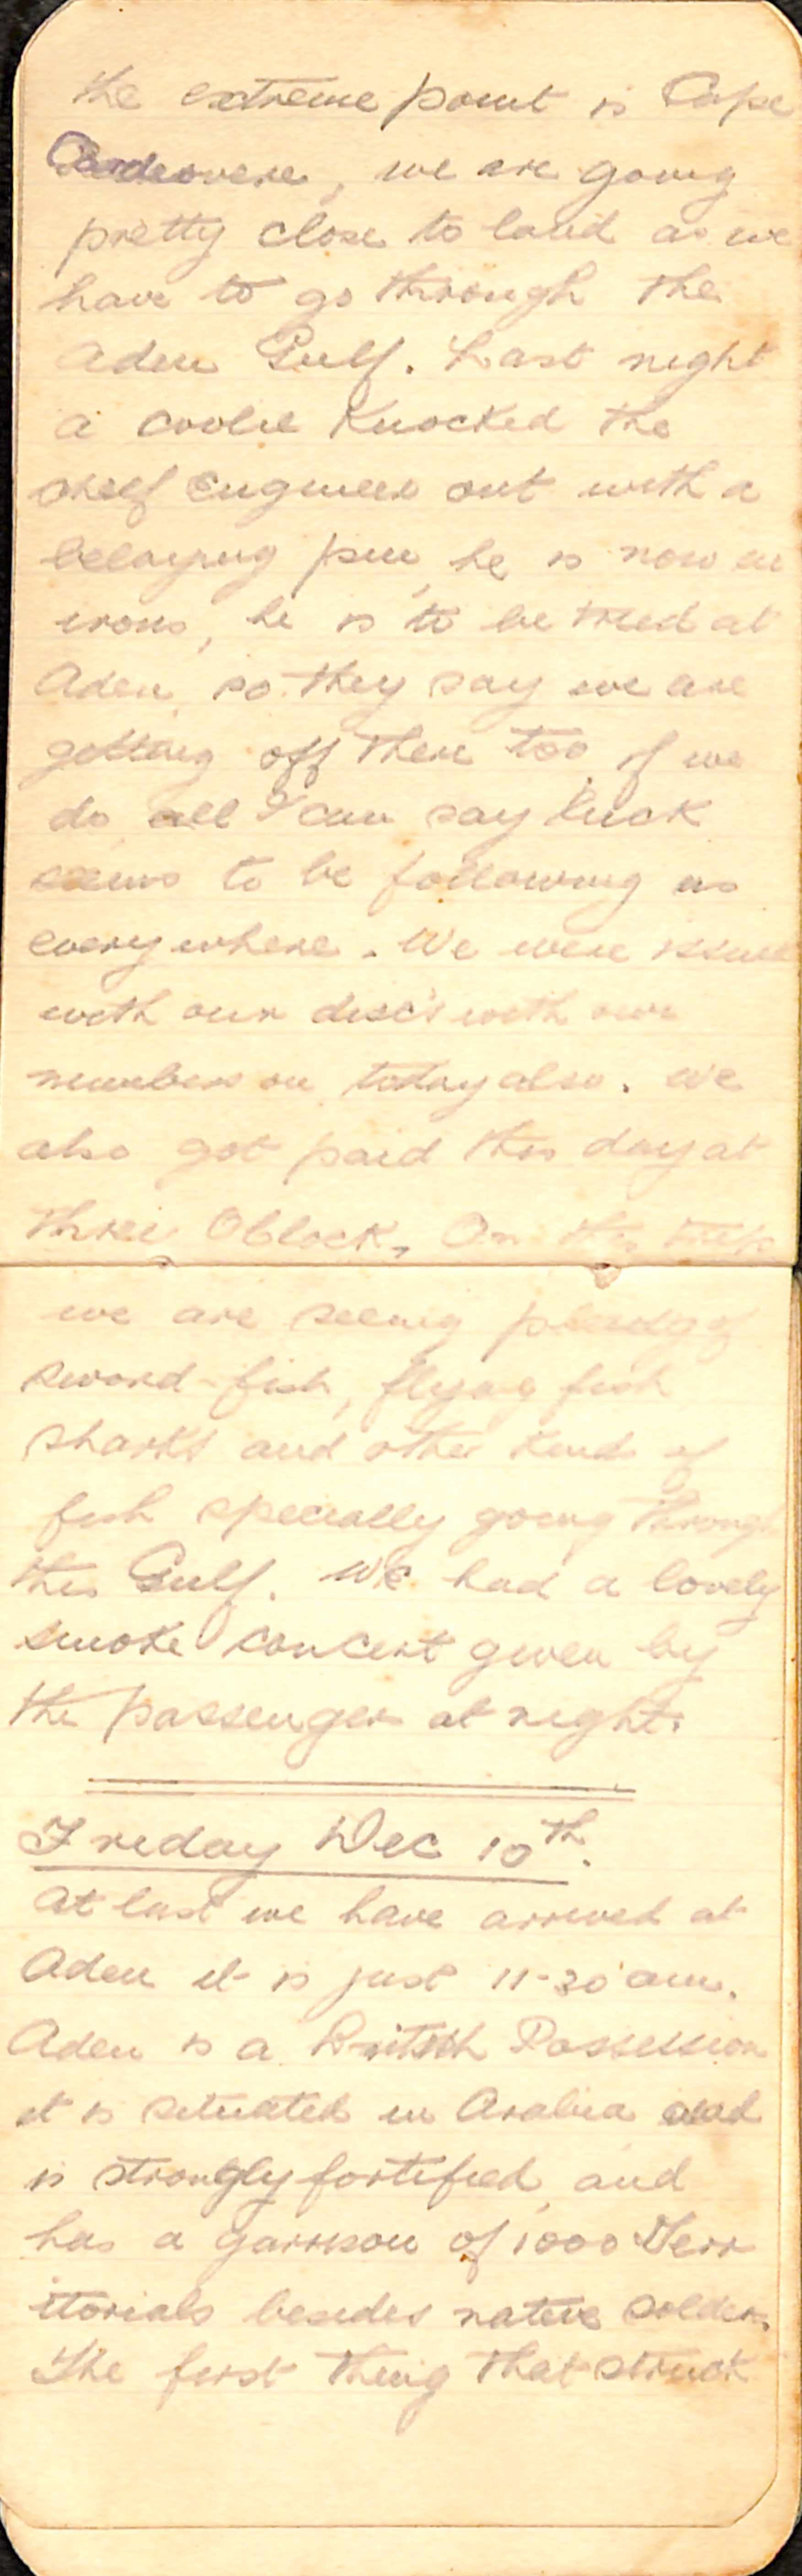 the extreme point is Cape
we are going
pretty close to land as we
have to go through the
Aden Gulf. Last night
a coolie Knocked the
cheif Engineer out with a
belaying pin, he is now in
irons, he is to be tried at
Aden, so they say we are
getting off there too, if we
do, all I can say luck
seems to be following us
everywhere. We were issued
with our disc's with our
numbers on, today also. We
also got paid this day at
three OClock. On this trip
we are seeing plenty of
sword-fish, flying fish
sharks and other kind of
fish specially going through
this Gulf. We had a lovely
smoke concert given by
the passengers at night.
Friday Dec 10th.
At last we have arrived at
Aden it is just 11-30 am.
Aden is a British Possession
it is situated in Arabia and
is strongly fortified, and
has a garrison of 1000 Terr
itorials besides native soldiers.
The first thing that struck